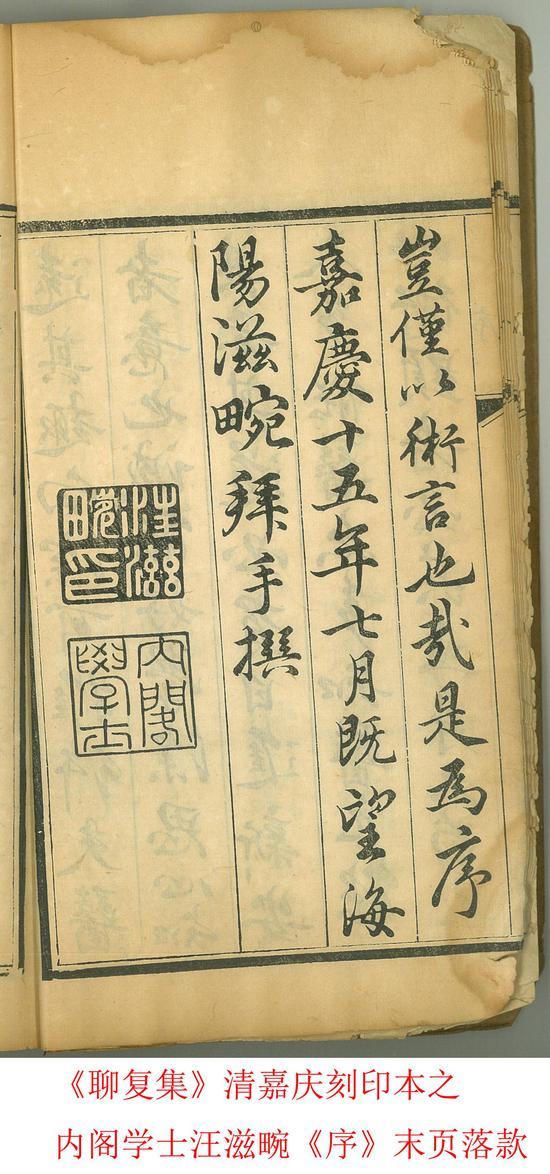 豈僅以術言也哉是為序
嘉慶十五年七月既望海
陽滋畹拜手撰
汪滋畹印
內閣學士
《聊复集》清嘉庆刻印本之
内阁学士汪滋畹《序》末页落款